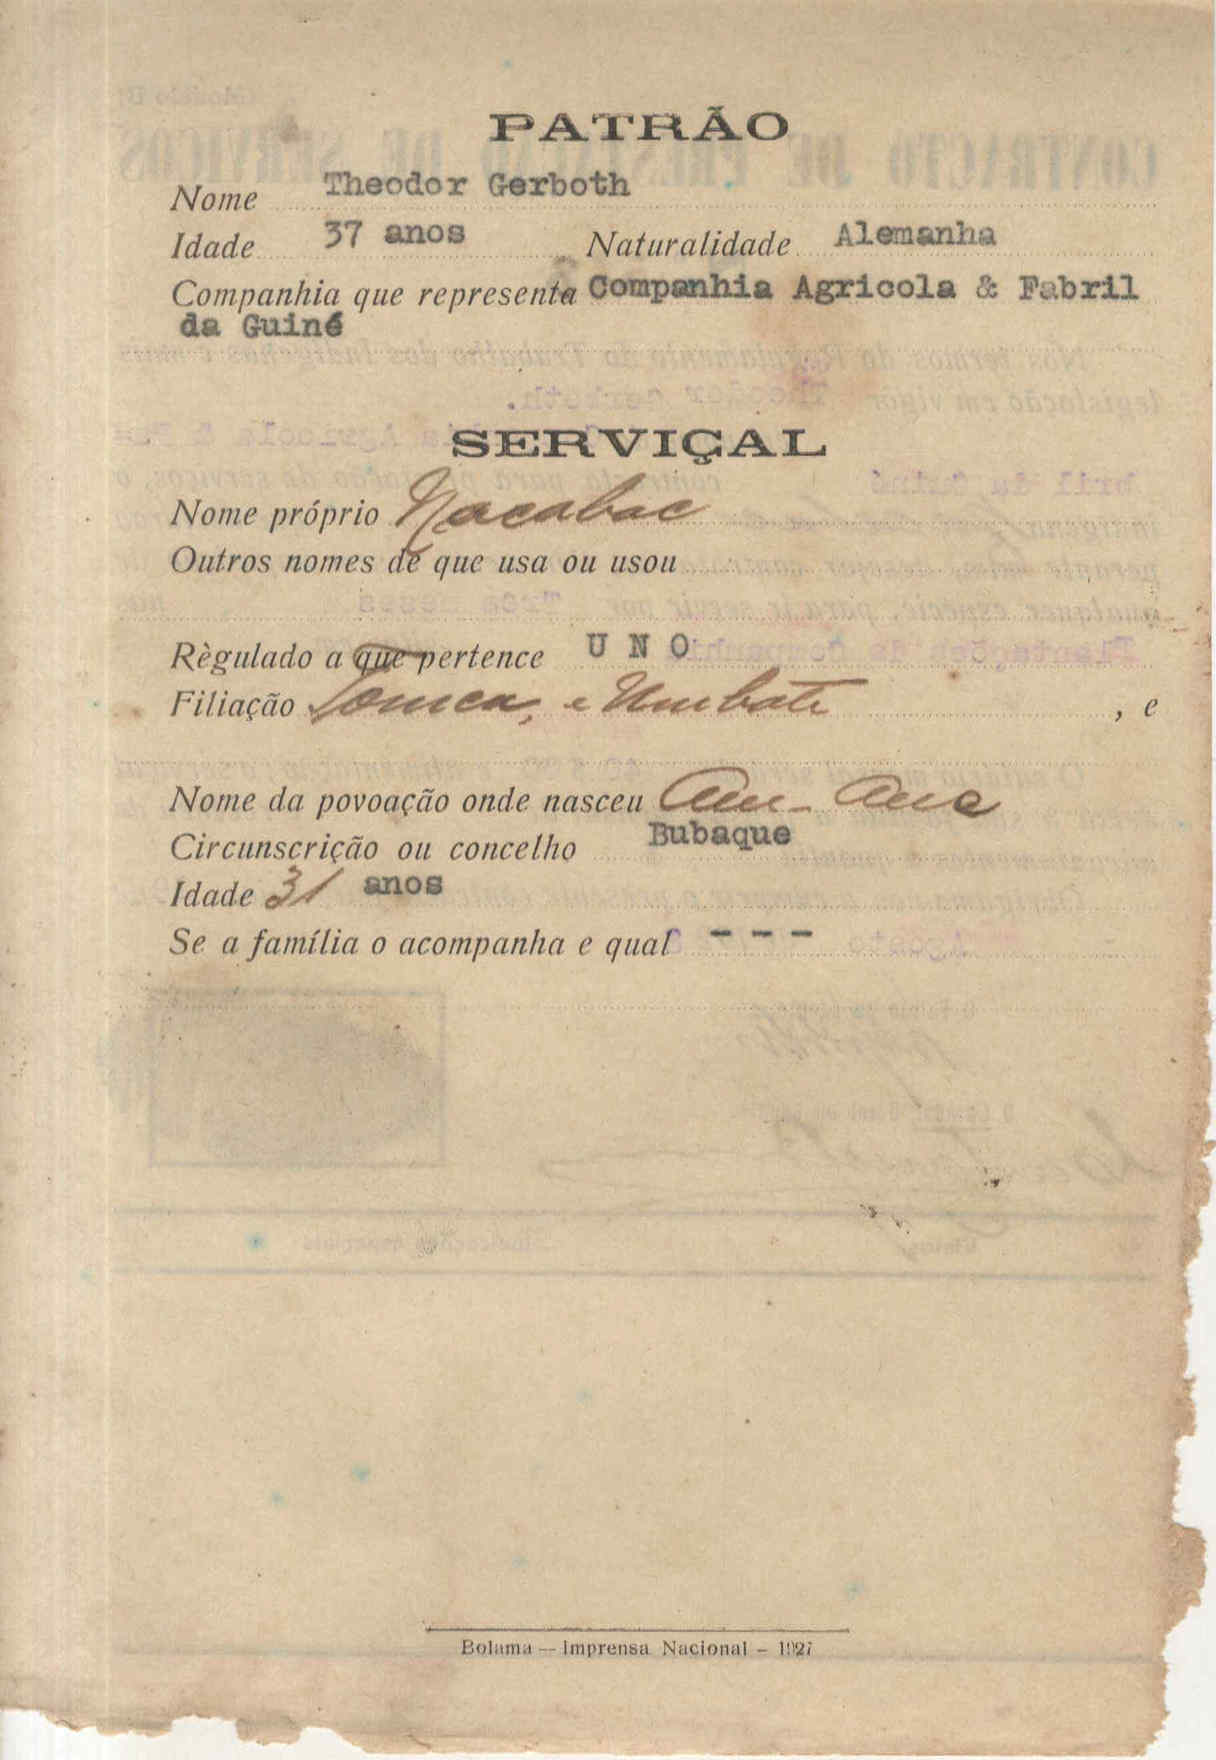 PATRÃO
Nome Theodor Gerboth
Idade 37 anos Naturalidade Alemanha
Companhia que representa Companhia Agricola & Fabril
da Guiné
SERVIÇAL
Nome próprio Nacabac
Outros nomes de que usa ou usou
Règulado a que pertence UNO
Filiação e Umbate , e
Nome da povoação onde nasceu
Circunscrição ou concelho Bubaque
Idade 31 anos
Se a família o acompanha e qual - - -
Bolama — Imprensa Nacional – 1927